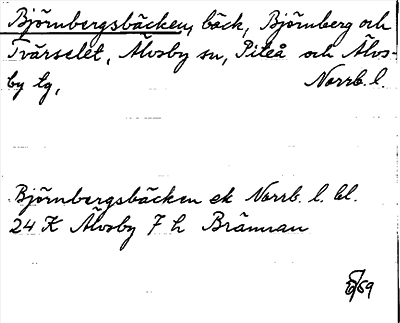 Björnbergsbäcken, bäck, Björnberg och
Tvärselet, Älvsby sn, Piteå och Älvs-
by lg, Norrb. l.
Björnbergsbäcken ek Norrb. l. bl.
24 K Älvsby 7 h Brännan
/59